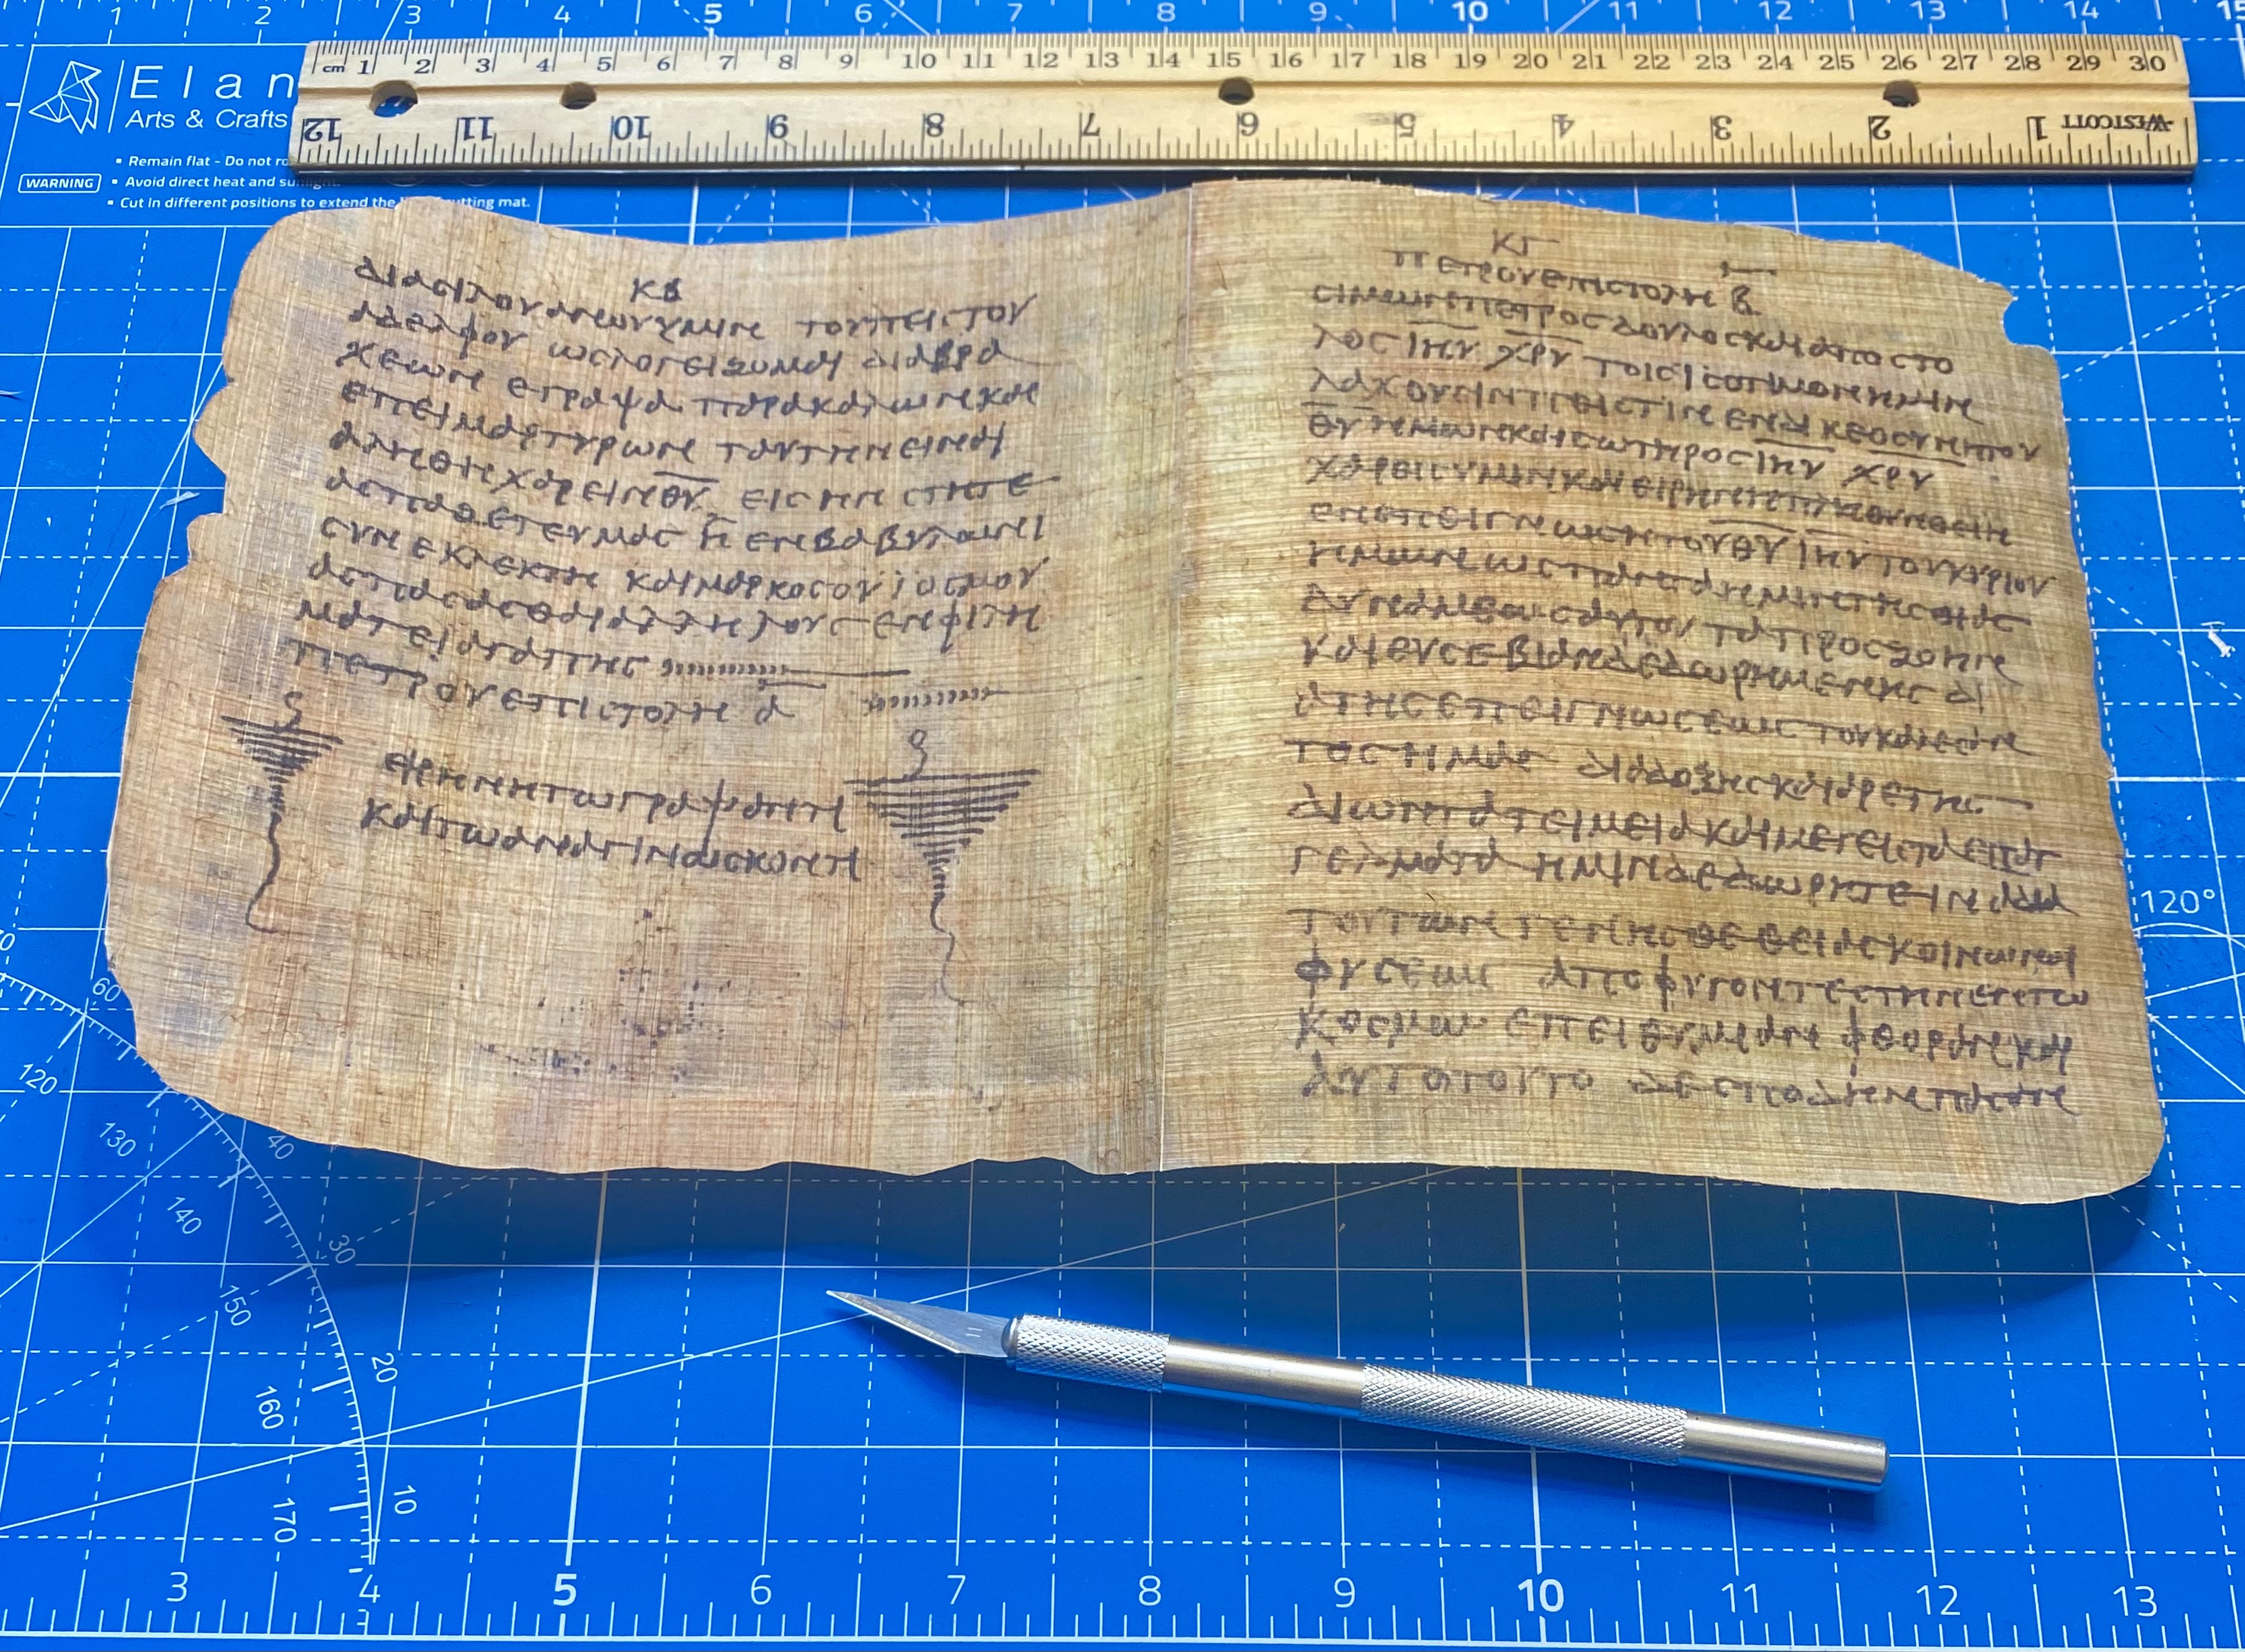 1 2 3 4 5 6 7 8 9 10 11 12 13 14 15
Elan
Arts & Crafts
WARNING
Remain flat - Do not ro
Avoid direct heat and sunlight.
Cut in different positions to extend the
tting mat.
cm 1 2 3 4 5 6 7 8 9 10 11 12 13 14 15 16 17 18 19 20 21 22 23 24 25 26 27 28 29 30
12 11 10 9 8 7 6 5 4 3 2 1 WESTCOTT
ΚΒ
ΔΙΑΣΙΛΟΥΑΝΟΥΥΜΙΝ ΤΟΥΠΕΙΣΤΟΥ
ΑΔΕΛΦΟΥ ΩΣΛΟΓΕΙΖΟΜΑΙ ΔΙΑΒΡΑ
ΧΕΩΝ ΕΓΡΑΨΑ ΠΑΡΑΚΑΛΩΝΚΑΙ
ΕΠΕΙΜΑΡΤΥΡΩΝ ΤΑΥΤΗΝΕΙΝΑΙ
ΑΛΗΘΗΧΑΡΕΙΝΘΥ ΕΙΣΗΝ ΣΤΗΤΕ
ΑΣΠΑΘΕΤΕΥΜΑΣ Η ΕΝΒΑΒΥΛΩΝΙ
ΣΥΝΕΚΛΕΚΤΗ ΚΑΙΜΑΡΚΟΣΟΥΙΟΣΜΟΥ
ΑΣΠΑΣΑΣΘΑΙΑΛΛΗΛΟΥΣ ΕΝΦΙΛΗ
ΜΑΤΕΙΑΓΑΠΗΣ
ΠΕΤΡΟΥΕΠΙΣΤΟΛΗ Α
ΕΙΡΗΝΗΤΩΓΡΑΨΑΝΤΙ
ΚΑΙΤΩΑΝΑΓΙΝΩΣΚΟΝΤΙ
ΚΓ
ΠΕΤΡΟΥΕΠΙΣΤΟΛΗ Β
ΣΙΜΩΝΠΕΤΡΟΣΔΟΥΛΟΣΚΑΙΑΠΟΣΤΟ
ΛΟΣΙΗΥ ΧΡΥ ΤΟΙΣΙΣΟΤΙΜΟΝΗΜΙΝ
ΛΑΧΟΥΣΙΝΠΙΣΤΙΝ ΕΝΔΙΚΕΟΣΥΝΗΤΟΥ
ΘΥΗΜΩΝΚΑΙΣΩΤΗΡΟΣΙΗΥ ΧΡΥ
ΧΑΡΕΙΣΥΜΙΝΚΑΙΕΙΡΗΝΗΠΛΗΘΥΝΘΕΙΗ
ΕΝΕΠΕΙΓΝΩΣΗΤΟΥΘΥ ΙΗΥΤΟΥΚΥΡΙΟΥ
ΗΜΩΝ ΩΣΠΑΝΤΑΗΜΙΝΤΗΣΘΙΑΣ
ΔΥΝΑΜΕΩΣΑΥΤΟΥ ΤΑΠΡΟΣΖΟΗΝ
ΚΑΙΕΥΣΕΒΙΑΝΔΕΔΩΡΗΜΕΝΗΣ ΔΙ
ΑΤΗΣΕΠΕΙΓΝΩΣΕΩΣ ΤΟΥΚΑΛΕΣΑΝ
ΤΟΣΗΜΑΣ ΔΙΑΔΟΞΗΣΚΑΙΑΡΕΤΗΣ
ΔΙΩΝΤΑΤΕΙΜΕΙΑΚΑΙΜΕΓΕΙΣΤΑΕΠΑΓ
ΓΕΛΜΑΤΑ ΗΜΙΝΔΕΔΩΡΗΤΕΙΝΑΔΙΑ
ΤΟΥΤΩΝ ΓΕΝΗΣΘΕΘΕΙΑΣΚΟΙΝΩΝΟΙ
ΦΥΣΕΩΣ ΑΠΟΦΥΓΟΝΤΕΣΤΗΝΕΝΤΩ
ΚΟΣΜΩ ΕΠΕΙΘΥΜΙΑΝ ΦΘΟΡΑΝΚΑΙ
ΑΥΤΟΤΟΥΤΟ ΔΕΣΠΟΔΗΝΠΑΣΑΝ
120°
60
120
130
140
150
160
170
40
30
20
10
3 4 5 6 7 8 9 10 11 12 13